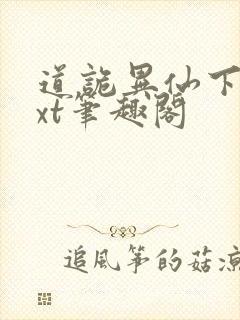 道詭異仙下
xt筆趣閣
追風箏的菇涼